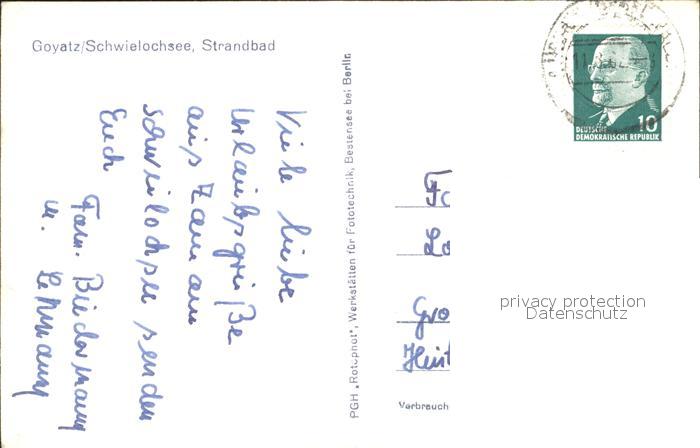 Goyatz/Schwielochsee, Strandbad
Viele liebe
Urlaubsgrüße
aus Zaue am
Schwielochsee senden
Euch
Fam. Biedermann
u. Lehmann
PGH „Rotophot", Werkstätten für Fototechnik, Bestensee bei Berlin
DEUTSCHE 10
DEMOKRATISCHE REPUBLIK
Fa
La
Gro
privacy protection
Datenschutz
Verbrauch